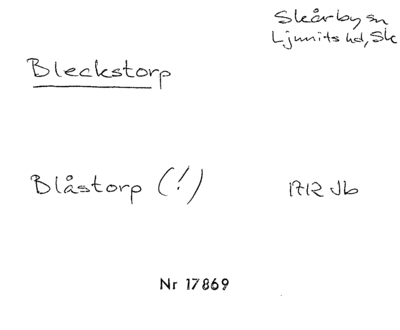 Skårby sn
Ljunits hd, Sk
Bleckstorp
Blåstorp (!) 1712 Jb
Nr 17869